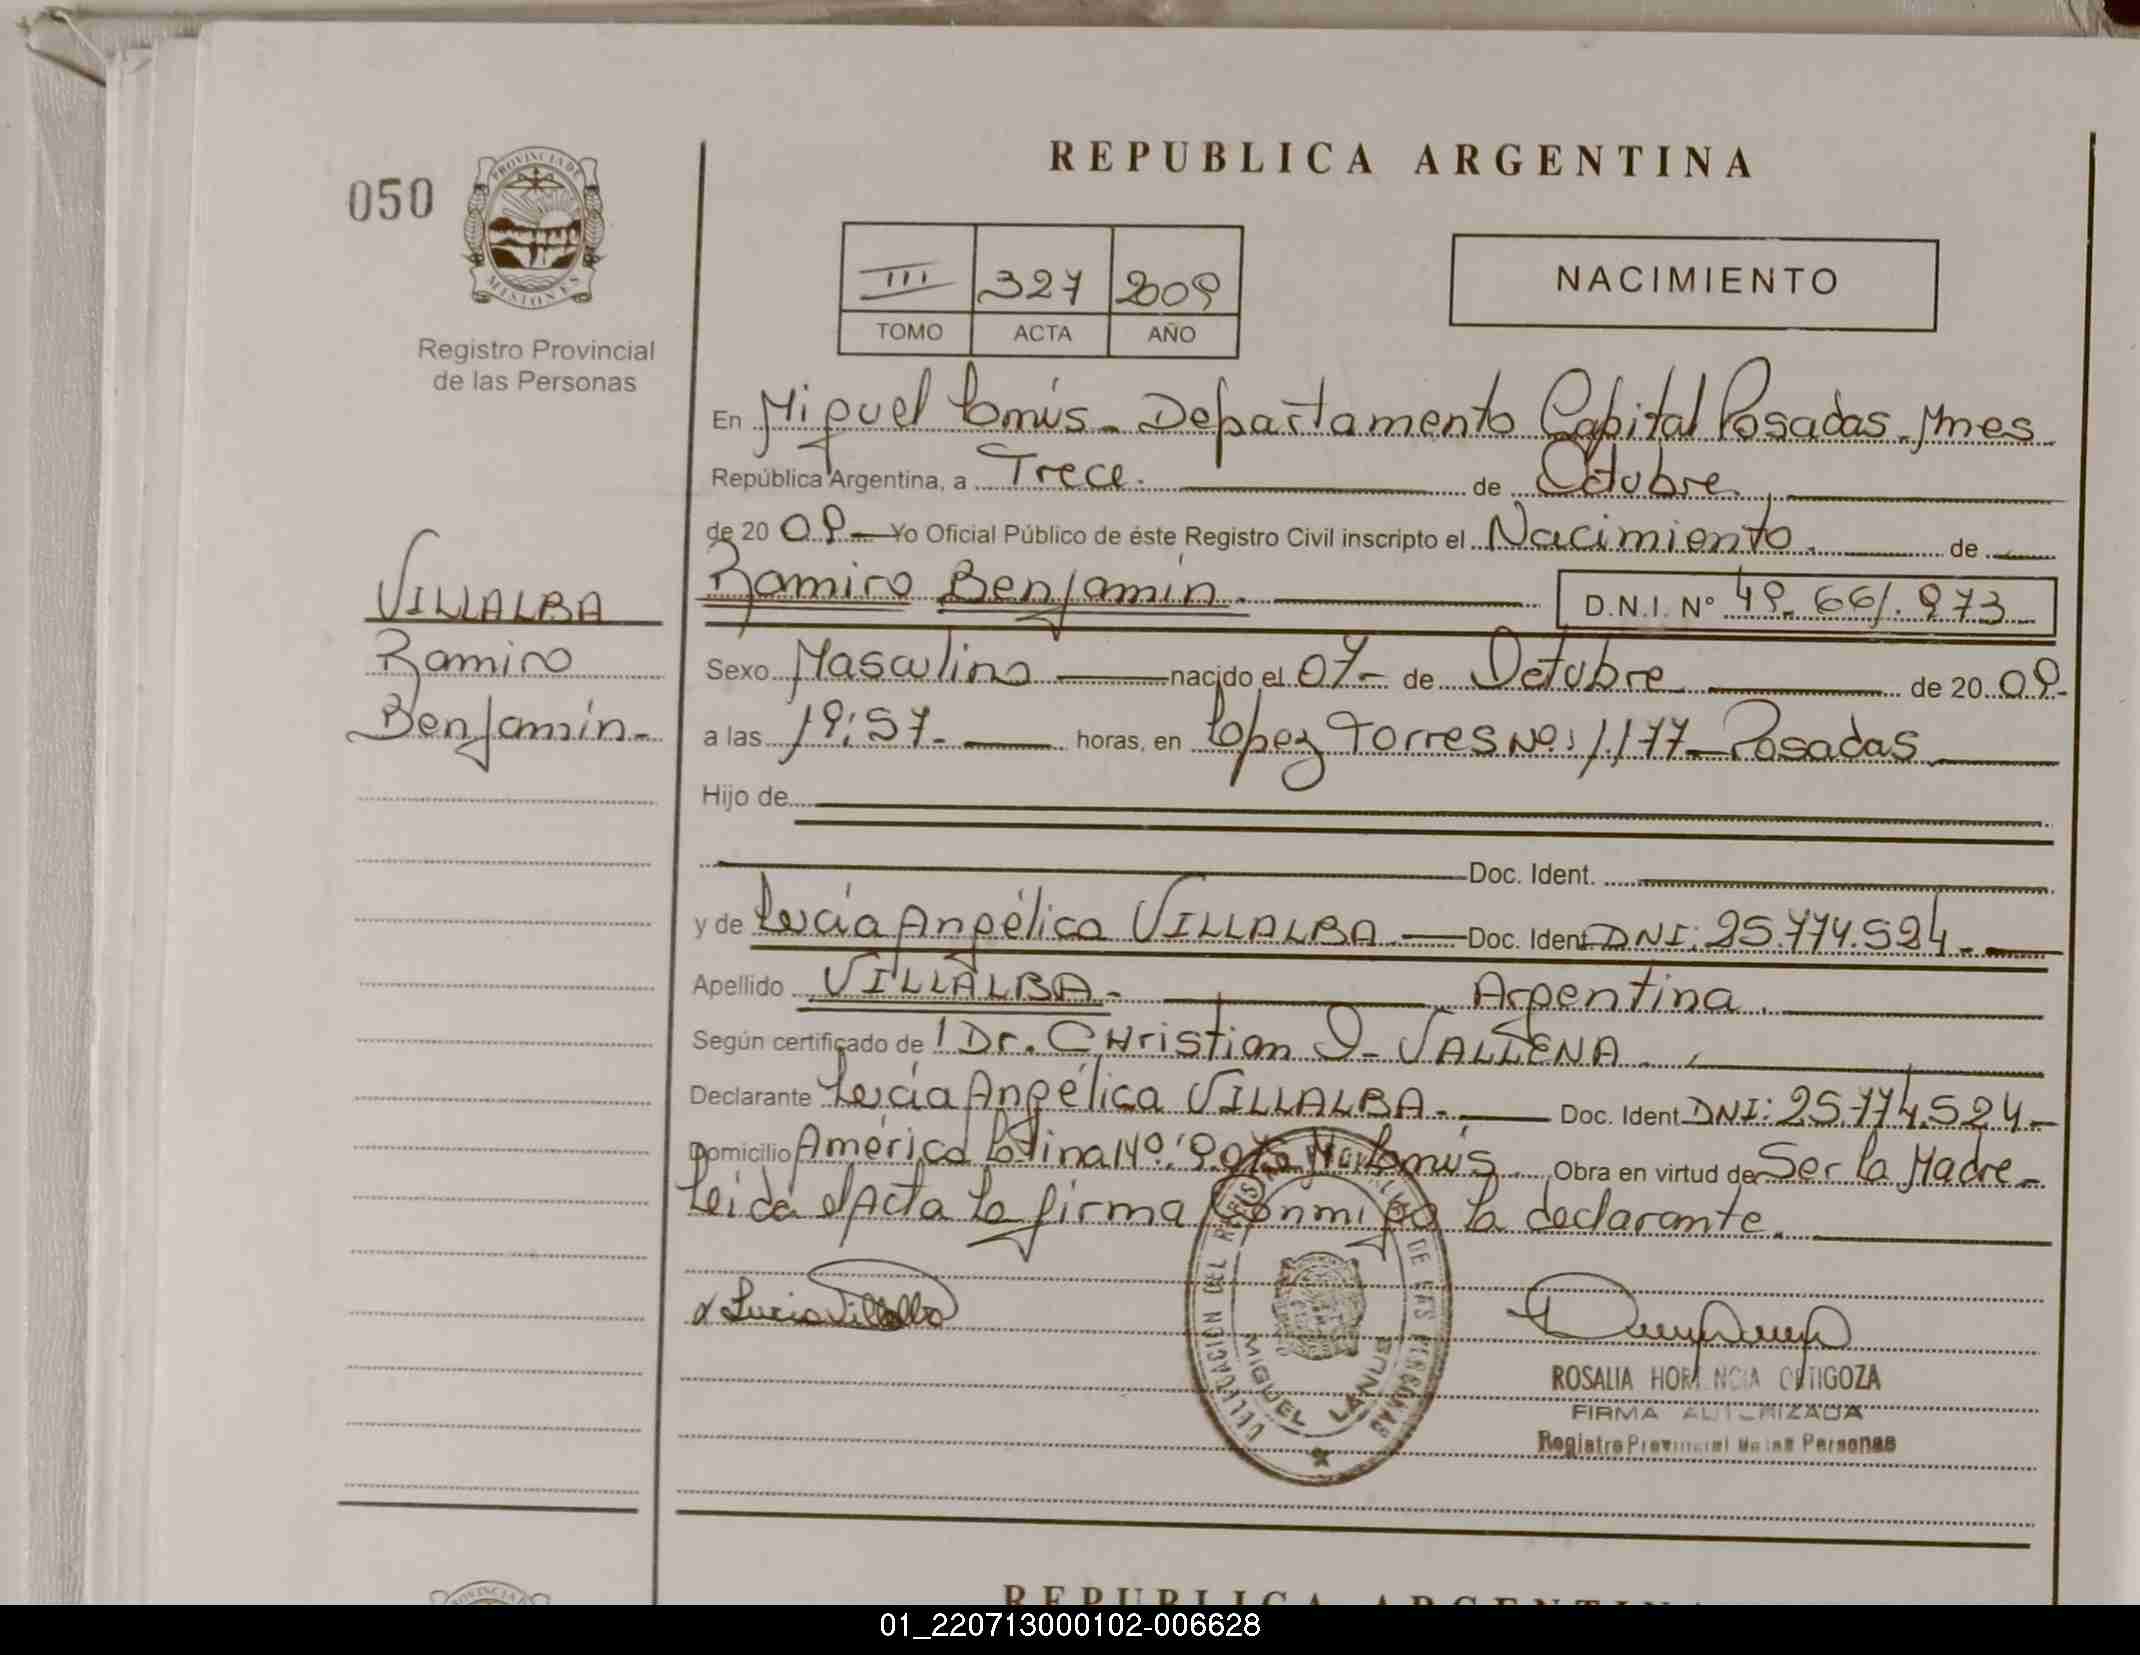 REPUBLICA ARGENTINA
050
PROVINCIA DE
MISIONES
Registro Provincial
de las Personas
III 327 2009
TOMO ACTA AÑO
NACIMIENTO
En Miguel Lanús - Departamento Capital Posadas - Mnes
República Argentina, a Trece. de Octubre.
de 20 09 Yo Oficial Público de éste Registro Civil inscripto el Nacimiento. de
Ramiro Benjamín. D.N.I. Nº 49.661.973
VILLALBA
Ramiro
Benjamín.
Sexo Masculino nacido el 07- de Octubre de 20 09.
a las 19:57. horas, en López Torres No: 1.177 - Posadas
Hijo de
Doc. Ident.
y de Lucía Angélica VILLALBA Doc. Ident. DNI: 25.774.524.
Apellido VILLALBA. Argentina.
Según certificado de l Dr. CHristian D. VALLENA.
Declarante Lucía Angélica VILLALBA. Doc. Ident. DNI: 25.774.524
Domicilio América Latina Nº Lanús Obra en virtud de Ser la Madre
Leída el Acta la firma Conmigo la declarante.
Lucia Villalba
DELEGACION DEL DE LAS PERSONAS
MIGUEL LANUS
ROSALIA HORTENCIA ORTIGOZA
FIRMA AUTORIZADA
Registro Provincial de las Personas
PROVINCIA
REPUBLICA ARGENTINA
01_220713000102-006628